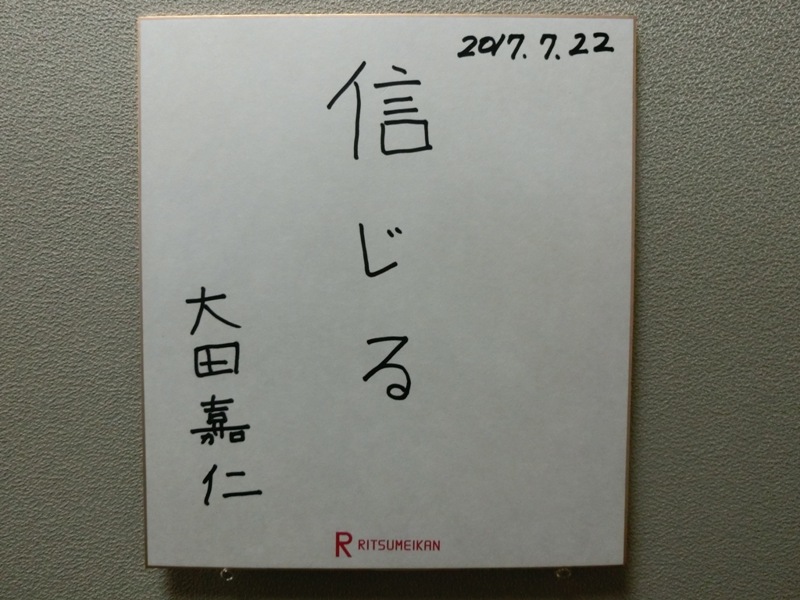 2017.7.22
信じる
大田嘉仁
R RITSUMEIKAN